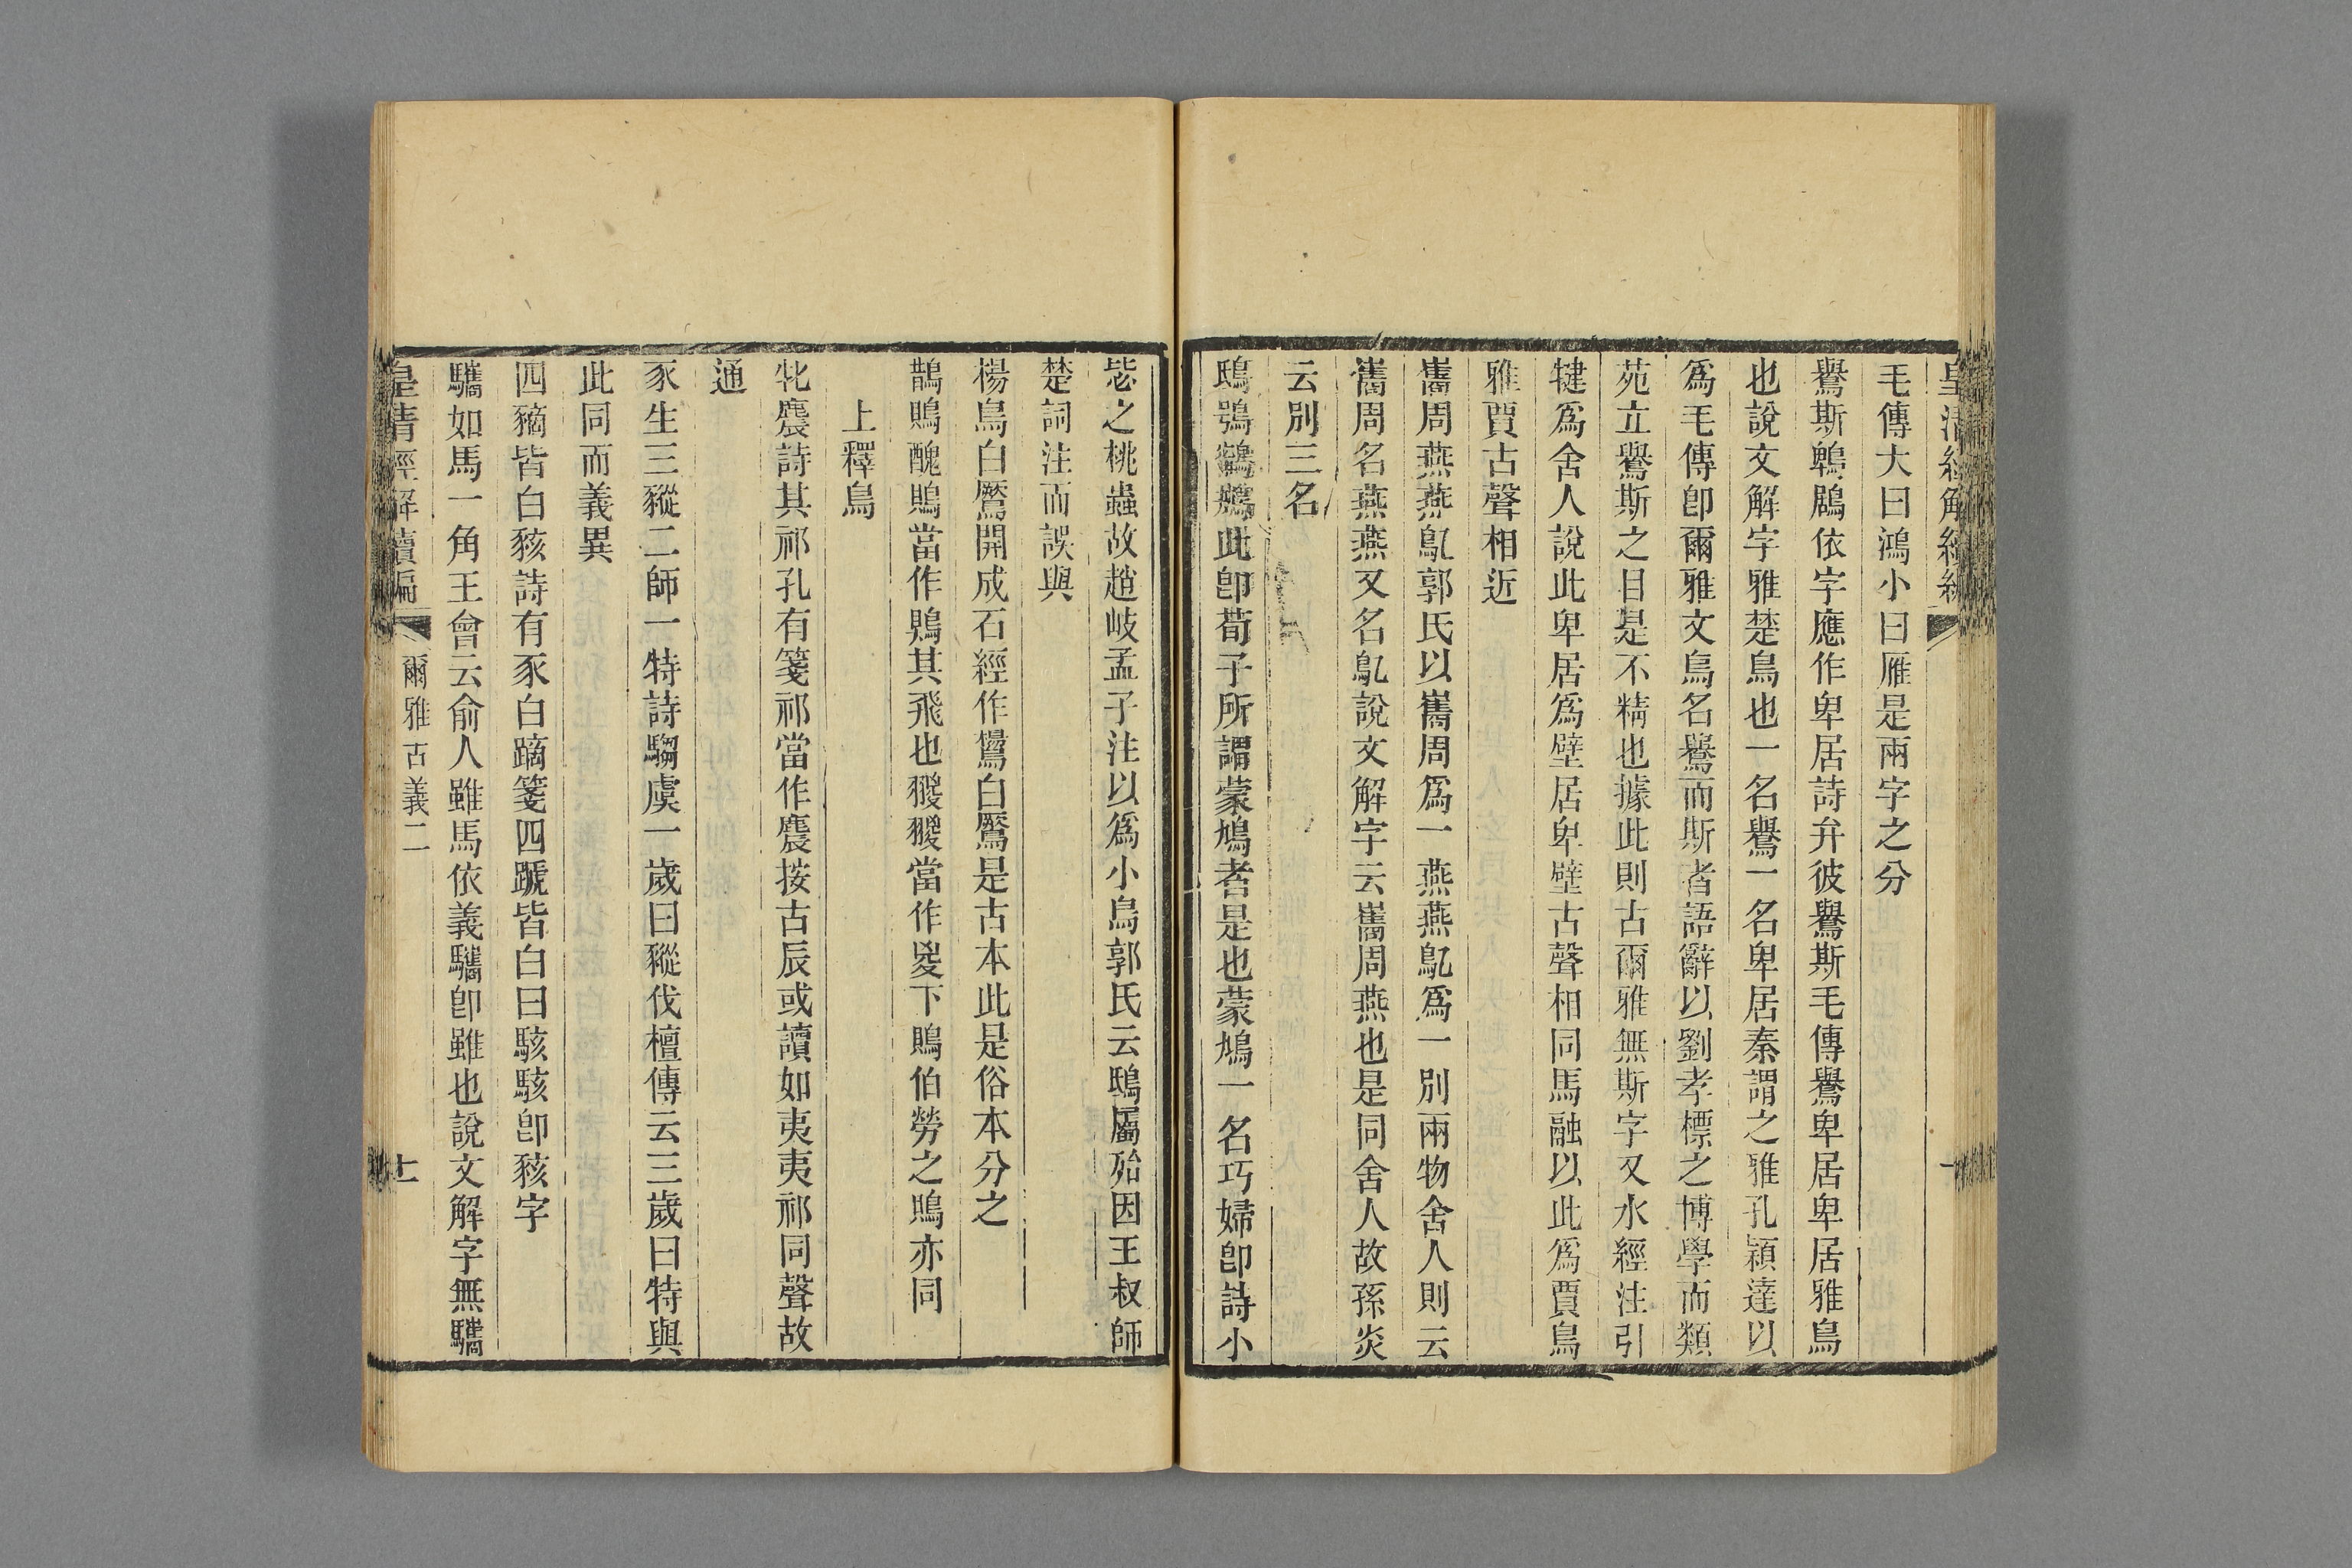 毛傳大曰鴻小曰雁是兩字之分
鸒斯鵯鶋依字應作卑居詩弁彼鸒斯毛傳鸒卑居卑居雅烏
也說文解字雅楚烏也一名鸒一名卑居秦謂之雅孔穎達以
爲毛傳卽爾雅文烏名鸒而斯者語辭以劉孝標之博學而類
苑立鸒斯之目是不精也據此則古爾雅無斯字又水經注引
犍爲舍人說此卑居爲壁居卑壁古聲相同馬融以此爲賈烏
雅賈古聲相近
巂周燕燕鳦郭氏以巂周爲一燕燕鳦爲一別兩物舍人則云
巂周名燕燕又名鳦說文解字云巂周燕也是同舍人故孫炎
云別三名
鴟鴞鸋鴂此卽荀子所謂蒙鳩者是也蒙鳩一名巧婦卽詩小
毖之桃蟲故趙岐孟子注以爲小鳥郭氏云鴟屬殆因王叔師
楚詞注而誤與
楊鳥白鷢開成石經作鸉白鷢是古本此是俗本分之
鵲鵙醜鵙當作鶪其飛也翪翪當作㚇下鵙伯勞之鵙亦同
上釋鳥
牝麎詩其祁孔有箋祁當作麎按古辰或讀如夷夷祁同聲故
通
豕生三豵二師一特詩騶虞一歲曰豵伐檀傳云三歲曰特與
此同而義異
四豴皆白豥詩有豕白蹢箋四蹏皆白曰駭駭卽豥字
驨如馬一角王會云俞人雖馬依義驨卽雖也說文解字無驨
皇淸經解續編
爾雅古義二